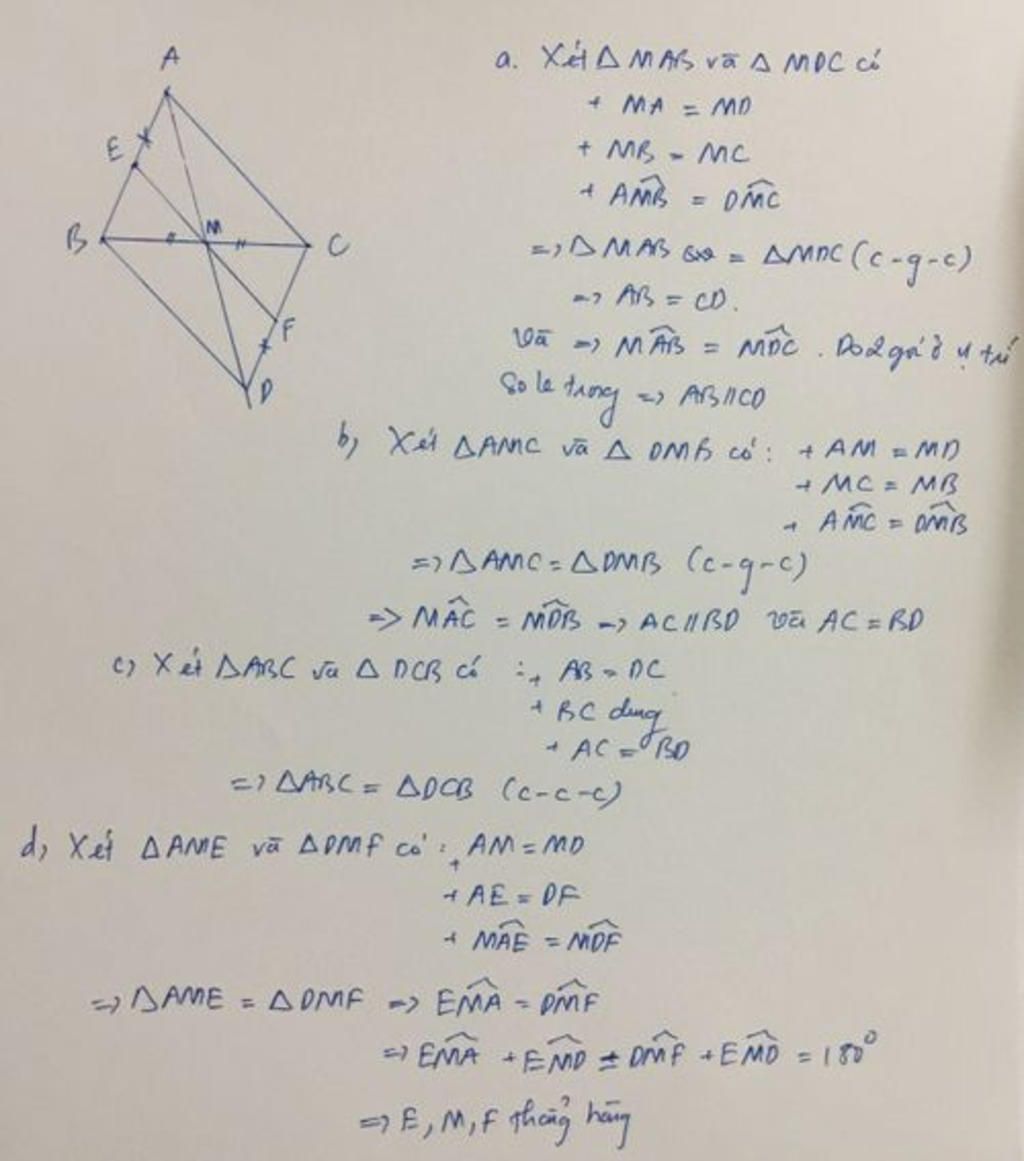 A
E
B
M
C
F
D
a. Xét Δ MAB và Δ MDC có
+ MA = MD
+ MB = MC
+ AM̂B = DM̂C
=> Δ MAB = ΔMDC (c-g-c)
=> AB = CD.
Và => MÂB = MD̂C . Do 2 góc ở vị trí
So le trong => AB//CD
b, Xét ΔAMC và Δ DMB có : + AM = MD
+ MC = MB
+ AM̂C = DM̂B
=> ΔAMC = ΔDMB (c-g-c)
=> MÂC = MD̂B => AC//BD và AC = BD
c, Xét ΔABC và Δ DCB có : + AB = DC
+ BC chung
+ AC = BD
=> ΔABC = ΔDCB (c-c-c)
d, Xét ΔAME và ΔDMF có : + AM = MD
+ AE = DF
+ MÂE = MD̂F
=> ΔAME = ΔDMF => EM̂A = DM̂F
=> EM̂A + EM̂D = DM̂F + EM̂D = 180°
=> E, M, F thẳng hàng